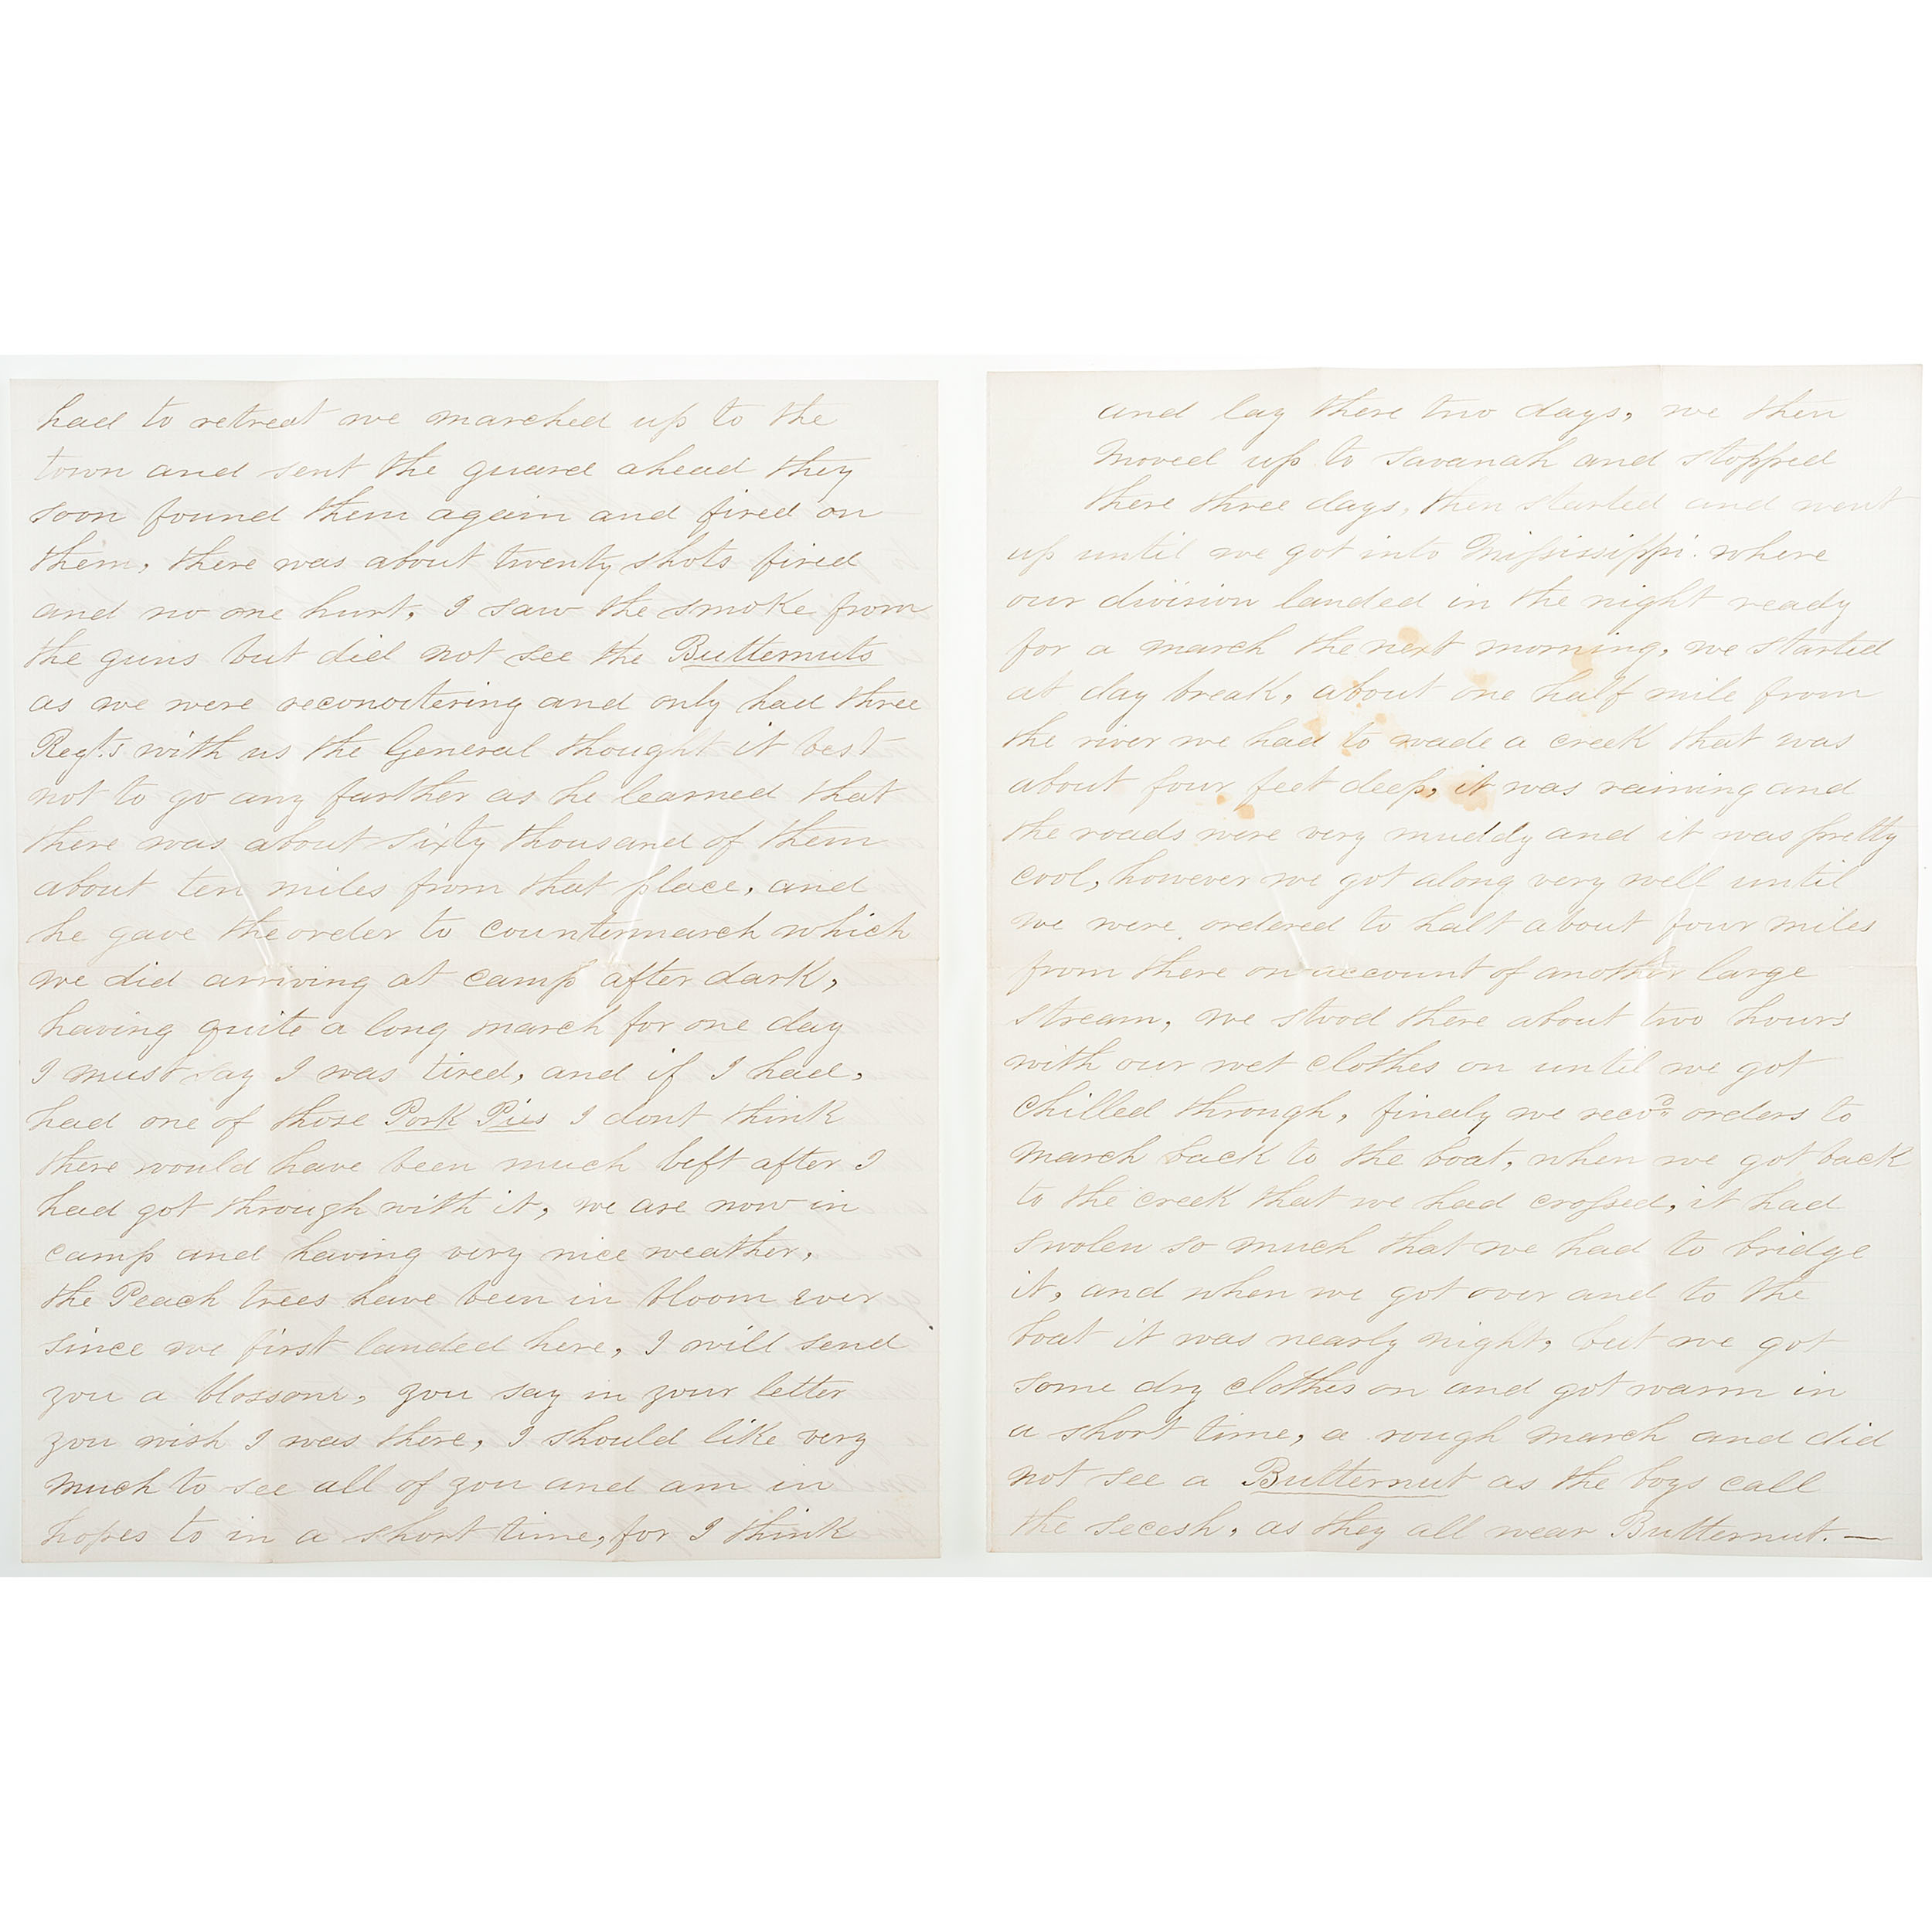 had to retreat we marched up to the
town and sent the guard ahead they
soon found them again and fired on
them, there was about twenty shots fired
and no one hurt, I saw the smoke from
the guns but did not see the Butternuts
as we were reconoitering and only had three
Regts with us the General thought it best
not to go any further as he learned that
there was about sixty thousand of them
about ten miles from that place, and
he gave the order to countermarch which
we did arriving at camp after dark,
having quite a long march for one day
I must say I was tired, and if I had,
had one of those Pork Pies I dont think
there would have been much left after I
had got through with it, we are now in
camp and having very nice weather,
the Peach trees have been in bloom ever
since we first landed here, I will send
you a blossom, you say in your letter
you wish I was there, I should like very
much to see all of you and am in
hopes to in a short time, for I think
and lay there two days, we then
moved up to Savanah and stopped
there three days, then started and went
up until we got into Mississippi. where
our division landed in the night ready
for a march the next morning, we started
at day break, about one half mile from
the river we had to wade a creek that was
about four feet deep, it was raining and
the roads were very muddy and it was pretty
cool, however we got along very well until
we were ordered to halt about four miles
from there on account of another large
stream, we stood there about two hours
with our wet clothes on until we got
chilled through, finaly we recvd orders to
march back to the boat, when we got back
to the creek that we had crossed, it had
swolen so much that we had to bridge
it, and when we got over and to the
boat it was nearly night, but we got
some dry clothes on and got warm in
a short time, a rough march and did
not see a Butternut as the boys call
the secesh, as they all wear Butternut. —